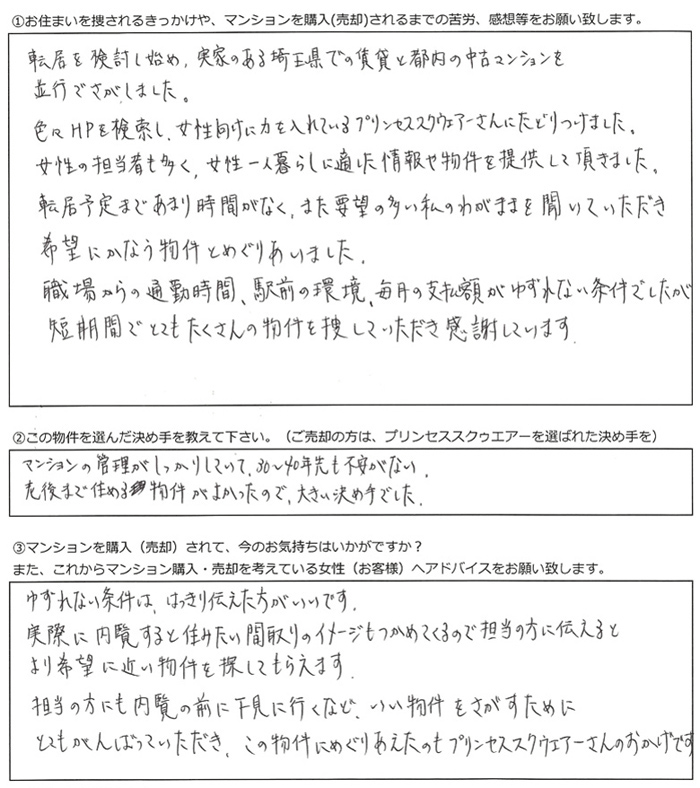 ①お住まいを捜されるきっかけや、マンションを購入(売却)されるまでの苦労、感想等をお願い致します。
転居を検討し始め、実家のある埼玉県での賃貸と都内の中古マンションを
並行でさがしました。
色々HPを検索し、女性向けに力を入れているプリンセススクウェアーさんにたどりつけました。
女性の担当者も多く、女性一人暮らしに適した情報や物件を提供して頂きました。
転居予定まであまり時間がなく、また要望の多い私のわがままを聞いていただき
希望にかなう物件とめぐりあいました。
職場からの通勤時間、駅前の環境、毎月の支払額がゆずれない条件でしたが
短期間でとてもたくさんの物件を捜していただき感謝しています
②この物件を選んだ決め手を教えて下さい。（ご売却の方は、プリンセススクゥエアーを選ばれた決め手を）
マンションの管理がしっかりしていて、30〜40年先も不安がない。
老後まで住める物件がよかったので、大きい決め手でした。
③マンションを購入（売却）されて、今のお気持ちはいかがですか？
また、これからマンション購入・売却を考えている女性（お客様）へアドバイスをお願い致します。
ゆずれない条件は、はっきり伝えた方がいいです。
実際に内覧すると住みたい間取りのイメージもつかめてくるので担当の方に伝えると
より希望に近い物件を探してもらえます。
担当の方にも内覧の前に下見に行くなど、いい物件をさがすために
とてもがんばっていただき、この物件にめぐりあえたのもプリンセススクウェアーさんのおかげです